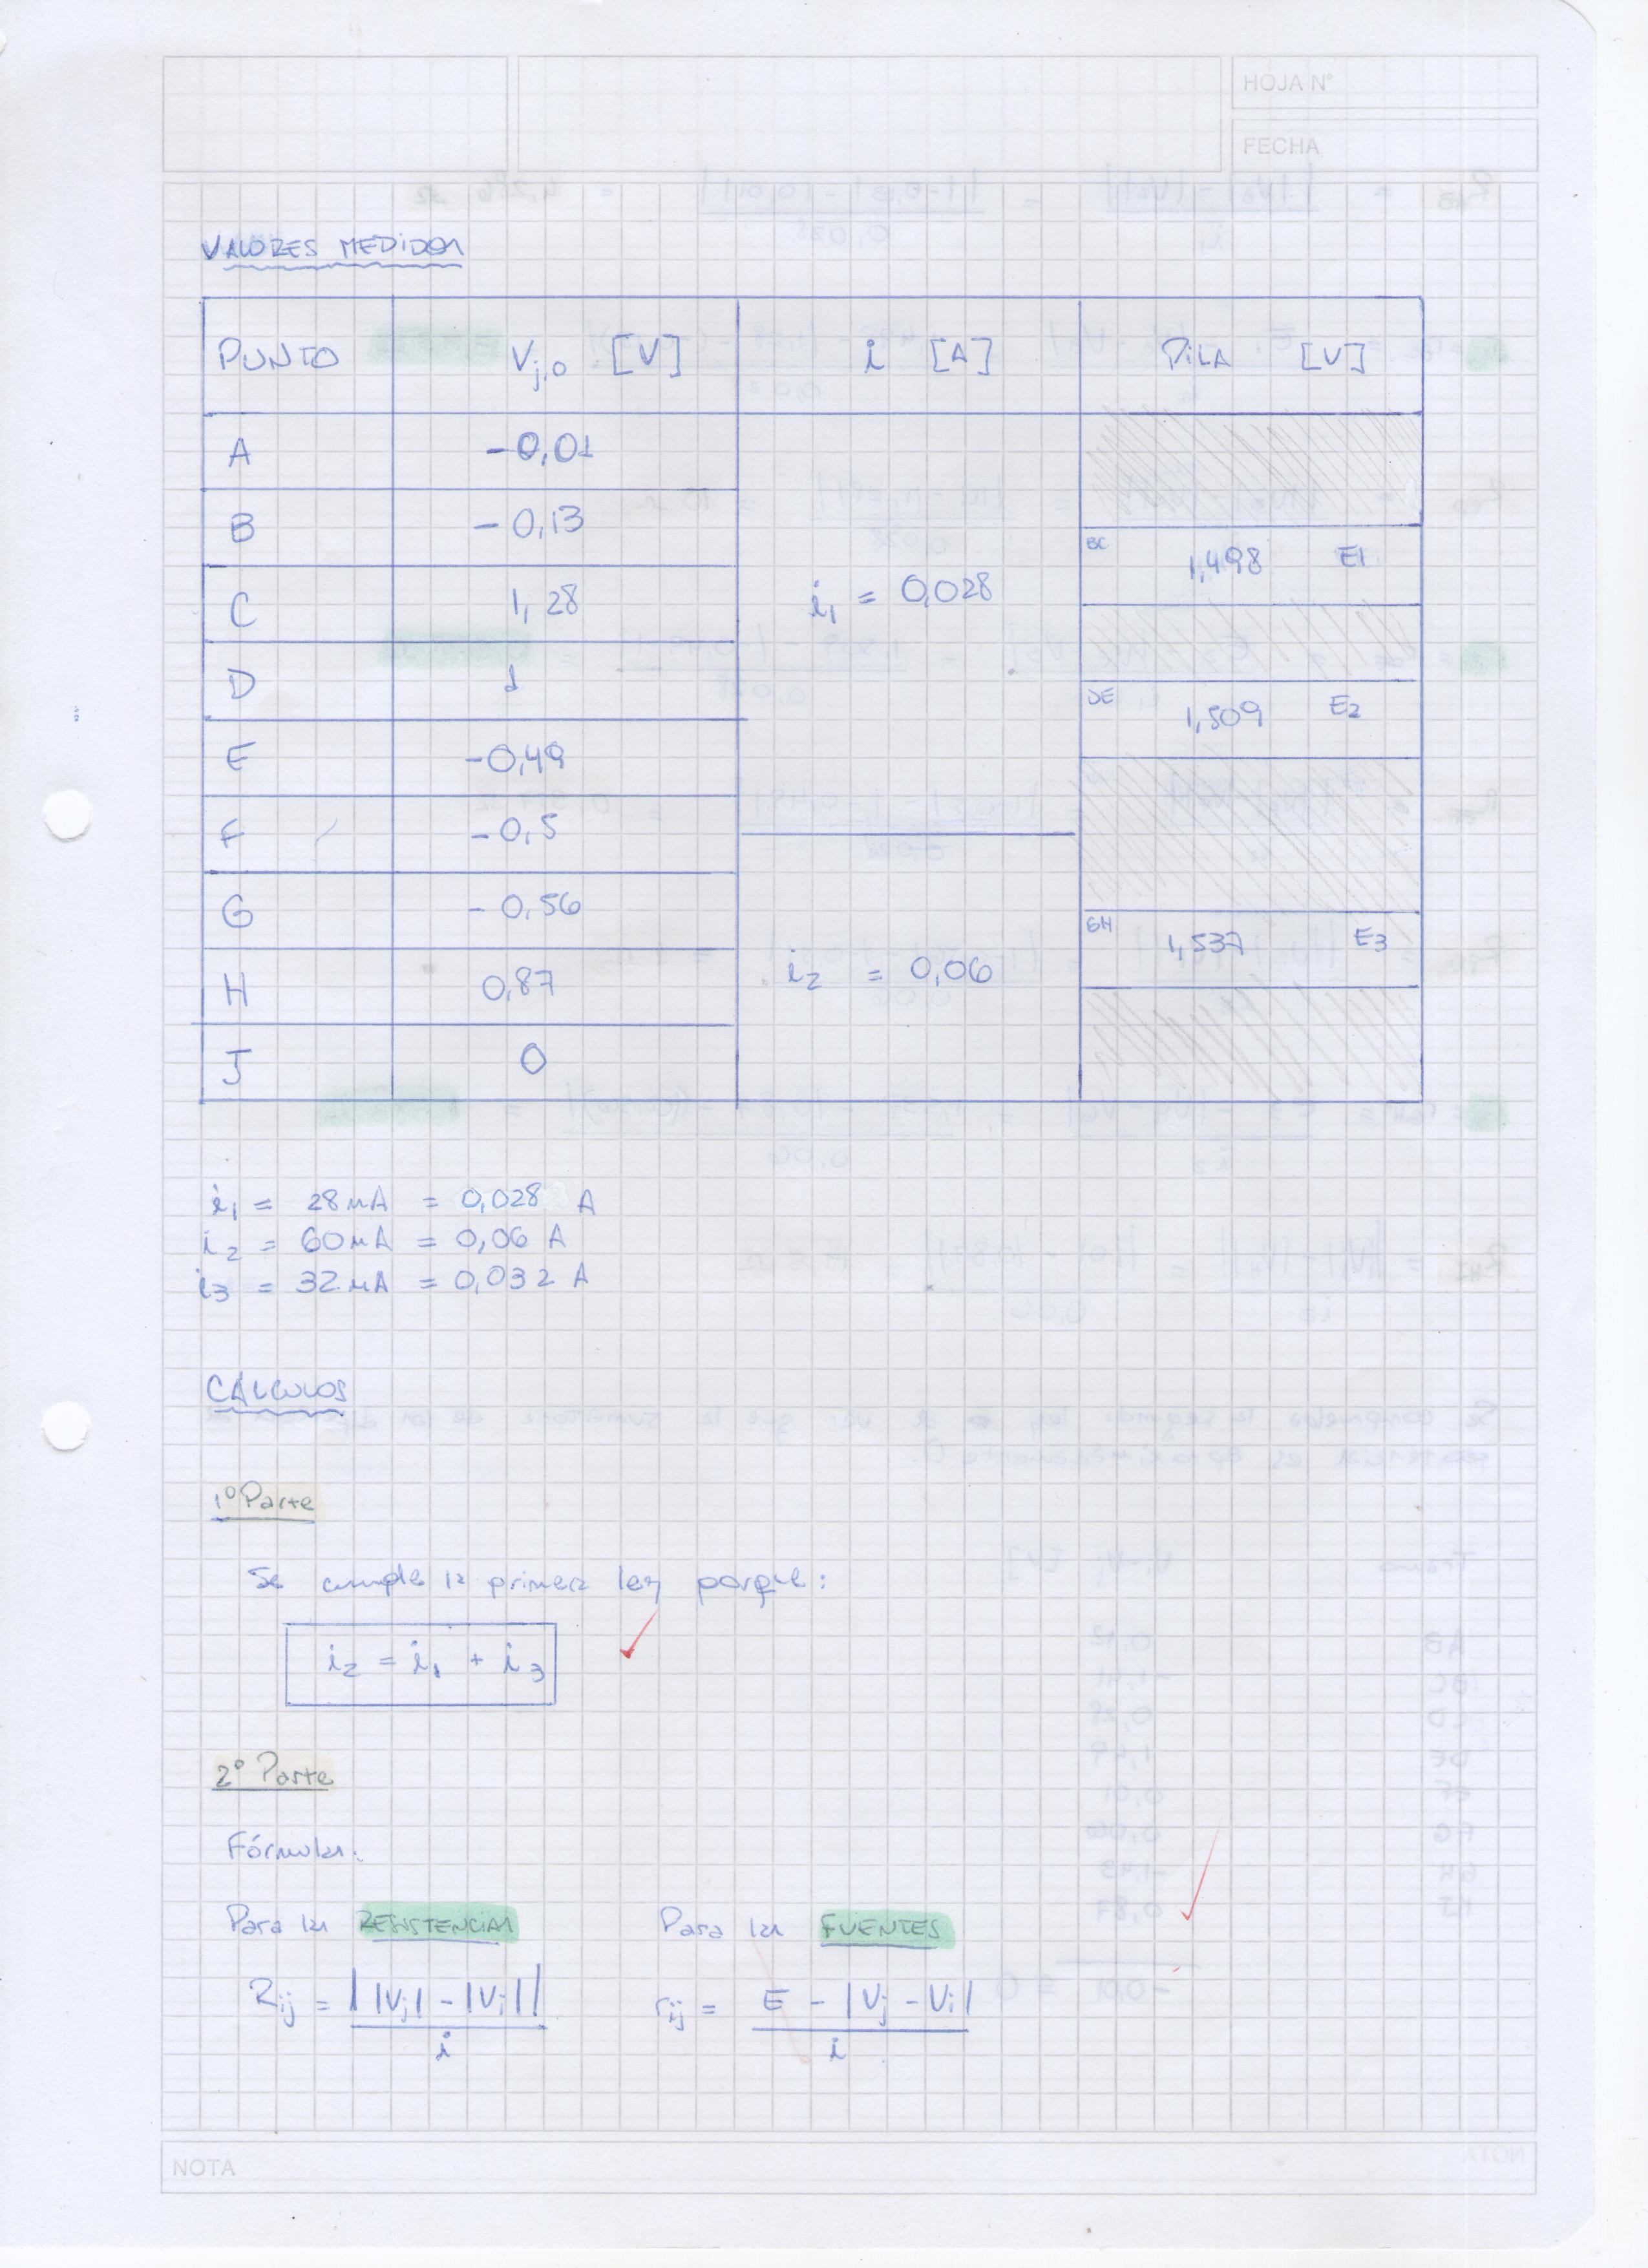 HOJA N°
FECHA
VALORES MEDIDOS
PUNTO Vj,0 [V] i [A] PILA [V]
A -0,01
B -0,13
BC 1,498 E1
C 1,28
i1 = 0,028
D 1
DE 1,509 E2
E -0,49
F -0,5
G -0,56
GH 1,537 E3
H 0,87
i2 = 0,06
J 0
i1 = 28mA = 0,028 A
i2 = 60mA = 0,06 A
i3 = 32mA = 0,032 A
CALCULOS
1° Parte
Se cumple la primera ley porque:
i2 = i1 + i3
2° Parte
Fórmulas:
Para las RESISTENCIAS Para las FUENTES
Rij = ||Vj| - |Vi|| / i rij = E - |Vj - Vi| / i
NOTA